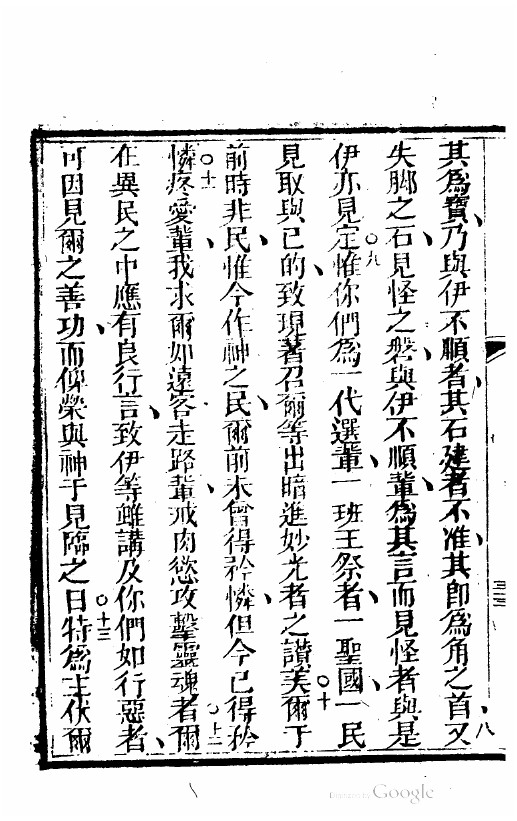 其為寶乃與伊不順者其石建者不准其即為角之首又八
失脚之石見怪之磐與伊不順輩為其言而見怪者與是
伊亦見定○九惟你們為一代選輩一班王祭者一聖國一民
見取與己的致現著召爾等出暗進妙光者之讚美○十爾于
前時非民惟今作神之民爾前未曾得矜憐但今已得矜
憐○十一疼愛輩我求爾如遠客走路輩戒肉慾攻擊靈魂者○十二爾
在異民之中應有良行言致伊等雖講及你們如行惡者
可因見爾之善功而俾榮與神于見臨之日○十三特為主伏爾
Digitized by Google